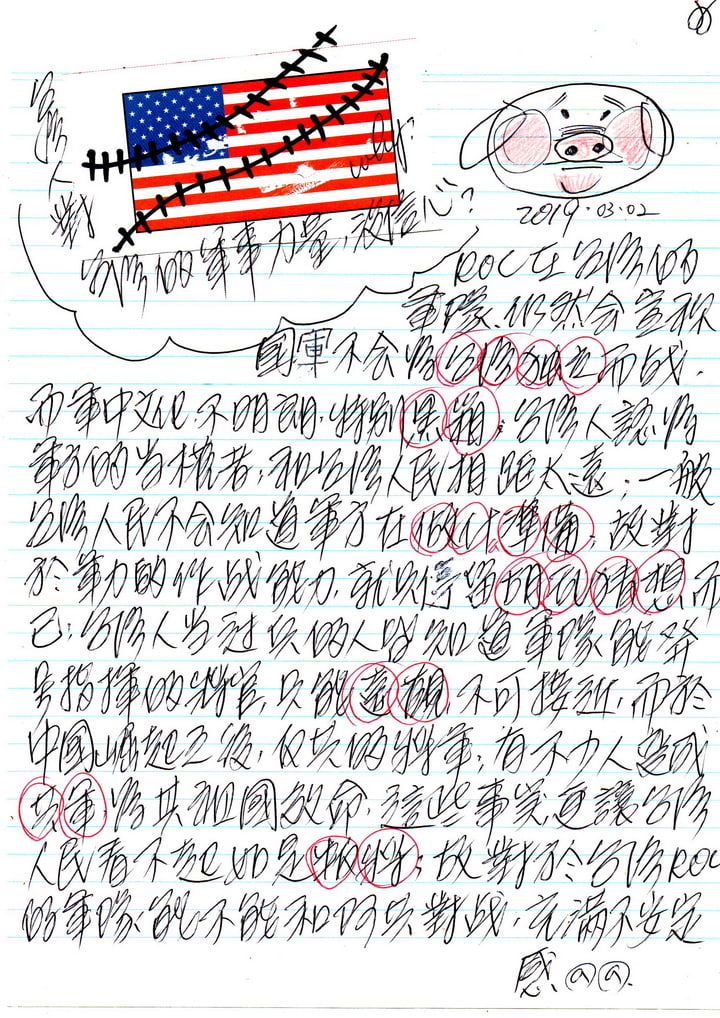 台灣人對
台灣的軍事力量,沒信心?
why?
2019.03.02
ROC在台灣的
軍隊,仍然会宣称
國軍不会為台灣独立而战,
而軍中文化,不明朗,特别黑箱;台灣人認為
軍方的当權者,和台灣人民相距太遠;一般
台灣人民不会知道軍方在做什麼準備;故對
於軍力的作战能力,就只停留胡乱猜想而
已;台灣人当过兵的人皆知道軍隊能發
号指揮的將官,只能遠觀,不可接近,而於
中國崛起之後,仅共的將軍,有不少人變成
共軍,為其祖國效命,這些事実更讓台灣
人民看不起如是叛將;故對於台灣ROC
的軍隊,能不能和阿共對战,充滿不安定
感@@.